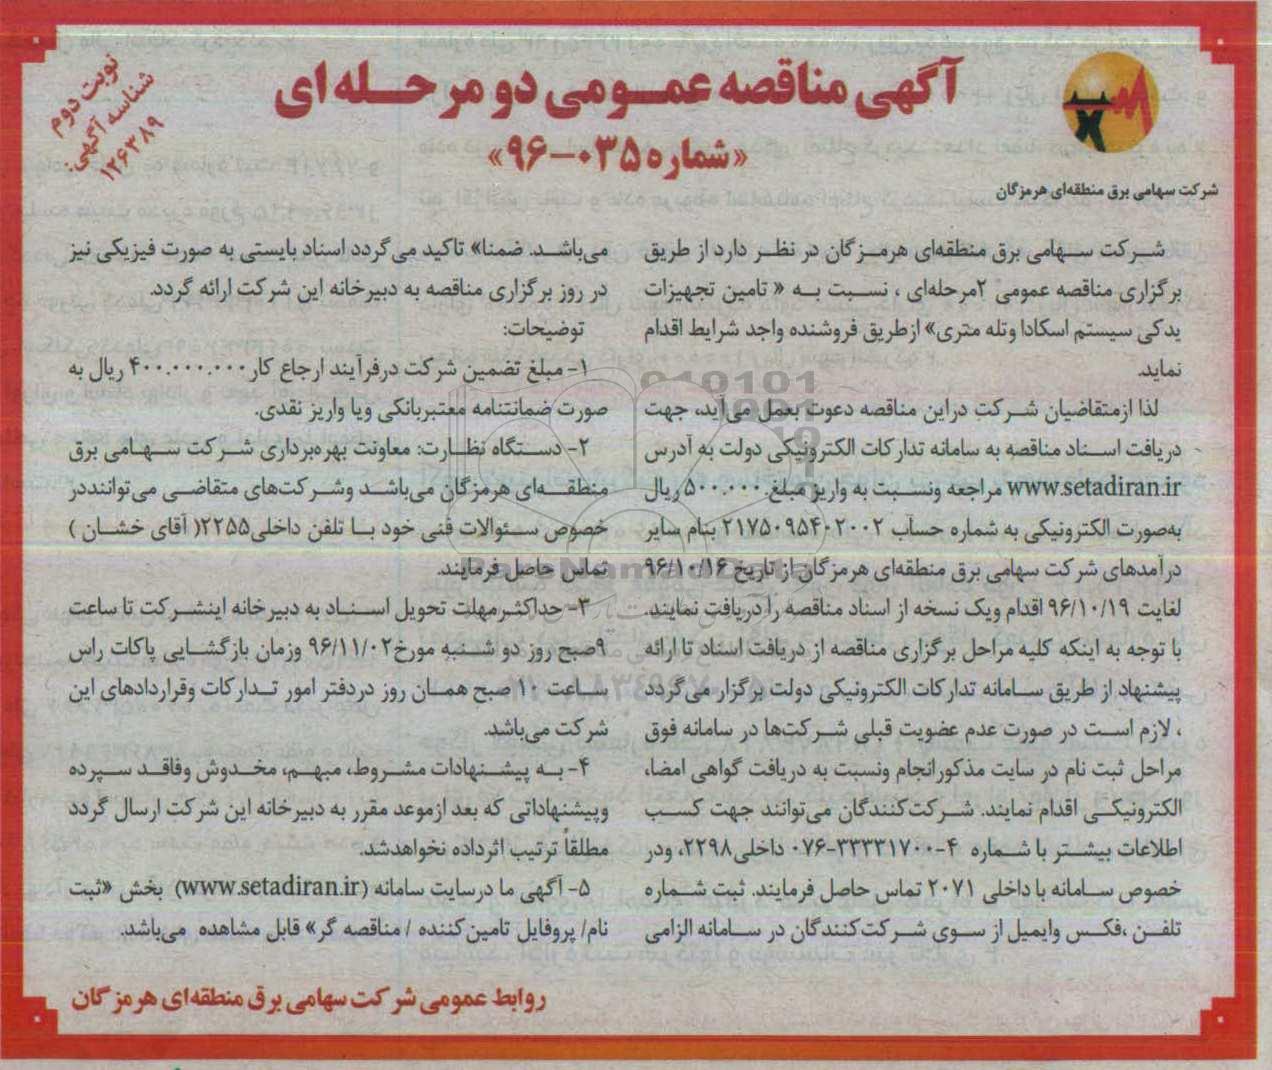 آگهی مناقصه عمومی دو مرحله ای
«شماره ۰۳۵-۹۶»
نوبت دوم
شناسه آگهی:
۱۲۶۳۸۹
شرکت سهامی برق منطقه‌ای هرمزگان
شرکت سهامی برق منطقه‌ای هرمزگان در نظر دارد از طریق
برگزاری مناقصه عمومی ۲مرحله‌ای ، نسبت به « تامین تجهیزات
یدکی سیستم اسکادا وتله متری» ازطریق فروشنده واجد شرایط اقدام
نماید.
لذا ازمتقاضیان شرکت دراین مناقصه دعوت بعمل می‌آید، جهت
دریافت اسناد مناقصه به سامانه تدارکات الکترونیکی دولت به آدرس
www.setadiran.ir مراجعه ونسبت به واریز مبلغ ۵۰۰.۰۰۰ ریال
به‌صورت الکترونیکی به شماره حساب ۲۱۷۵۰۹۵۴۰۲۰۰۲ بنام سایر
درآمدهای شرکت سهامی برق منطقه‌ای هرمزگان از تاریخ ۹۶/۱۰/۱۶
لغایت ۹۶/۱۰/۱۹ اقدام ویک نسخه از اسناد مناقصه را دریافت نمایند.
با توجه به اینکه کلیه مراحل برگزاری مناقصه از دریافت اسناد تا ارائه
پیشنهاد از طریق سامانه تدارکات الکترونیکی دولت برگزار می‌گردد
، لازم است در صورت عدم عضویت قبلی شرکت‌ها در سامانه فوق
مراحل ثبت نام در سایت مذکورانجام ونسبت به دریافت گواهی امضاء
الکترونیکی اقدام نمایند. شرکت‌کنندگان می‌توانند جهت کسب
اطلاعات بیشتر با شماره ۴-۳۳۳۳۱۷۰۰-۰۷۶ داخلی۲۲۹۸، ودر
خصوص سامانه با داخلی ۲۰۷۱ تماس حاصل فرمایند. ثبت شماره
تلفن ،فکس وایمیل از سوی شرکت‌کنندگان در سامانه الزامی
می‌باشد. ضمنا» تاکید می‌گردد اسناد بایستی به صورت فیزیکی نیز
در روز برگزاری مناقصه به دبیرخانه این شرکت ارائه گردد.
توضیحات:
۱- مبلغ تضمین شرکت درفرآیند ارجاع کار ۴۰۰.۰۰۰.۰۰۰ ریال به
صورت ضمانتنامه معتبربانکی ویا واریز نقدی.
۲- دستگاه نظارت: معاونت بهره‌برداری شرکت سهامی برق
منطقه‌ای هرمزگان می‌باشد وشرکت‌های متقاضی می‌تواننددر
خصوص سئوالات فنی خود با تلفن داخلی۲۲۵۵( آقای خشان )
تماس حاصل فرمایند.
۳- حداکثرمهلت تحویل اسناد به دبیرخانه اینشرکت تا ساعت
۹صبح روز دو شنبه مورخ۹۶/۱۱/۰۲ وزمان بازگشایی پاکات راس
ساعت ۱۰ صبح همان روز دردفتر امور تدارکات وقراردادهای این
شرکت می‌باشد.
۴- به پیشنهادات مشروط، مبهم، مخدوش وفاقد سپرده
وپیشنهاداتی که بعد ازموعد مقرر به دبیرخانه این شرکت ارسال گردد
مطلقاً ترتیب اثرداده نخواهدشد.
۵- آگهی ما درسایت سامانه (www.setadiran.ir) بخش «ثبت
نام/ پروفایل تامین‌کننده / مناقصه گر» قابل مشاهده می‌باشد.
روابط عمومی شرکت سهامی برق منطقه‌ای هرمزگان